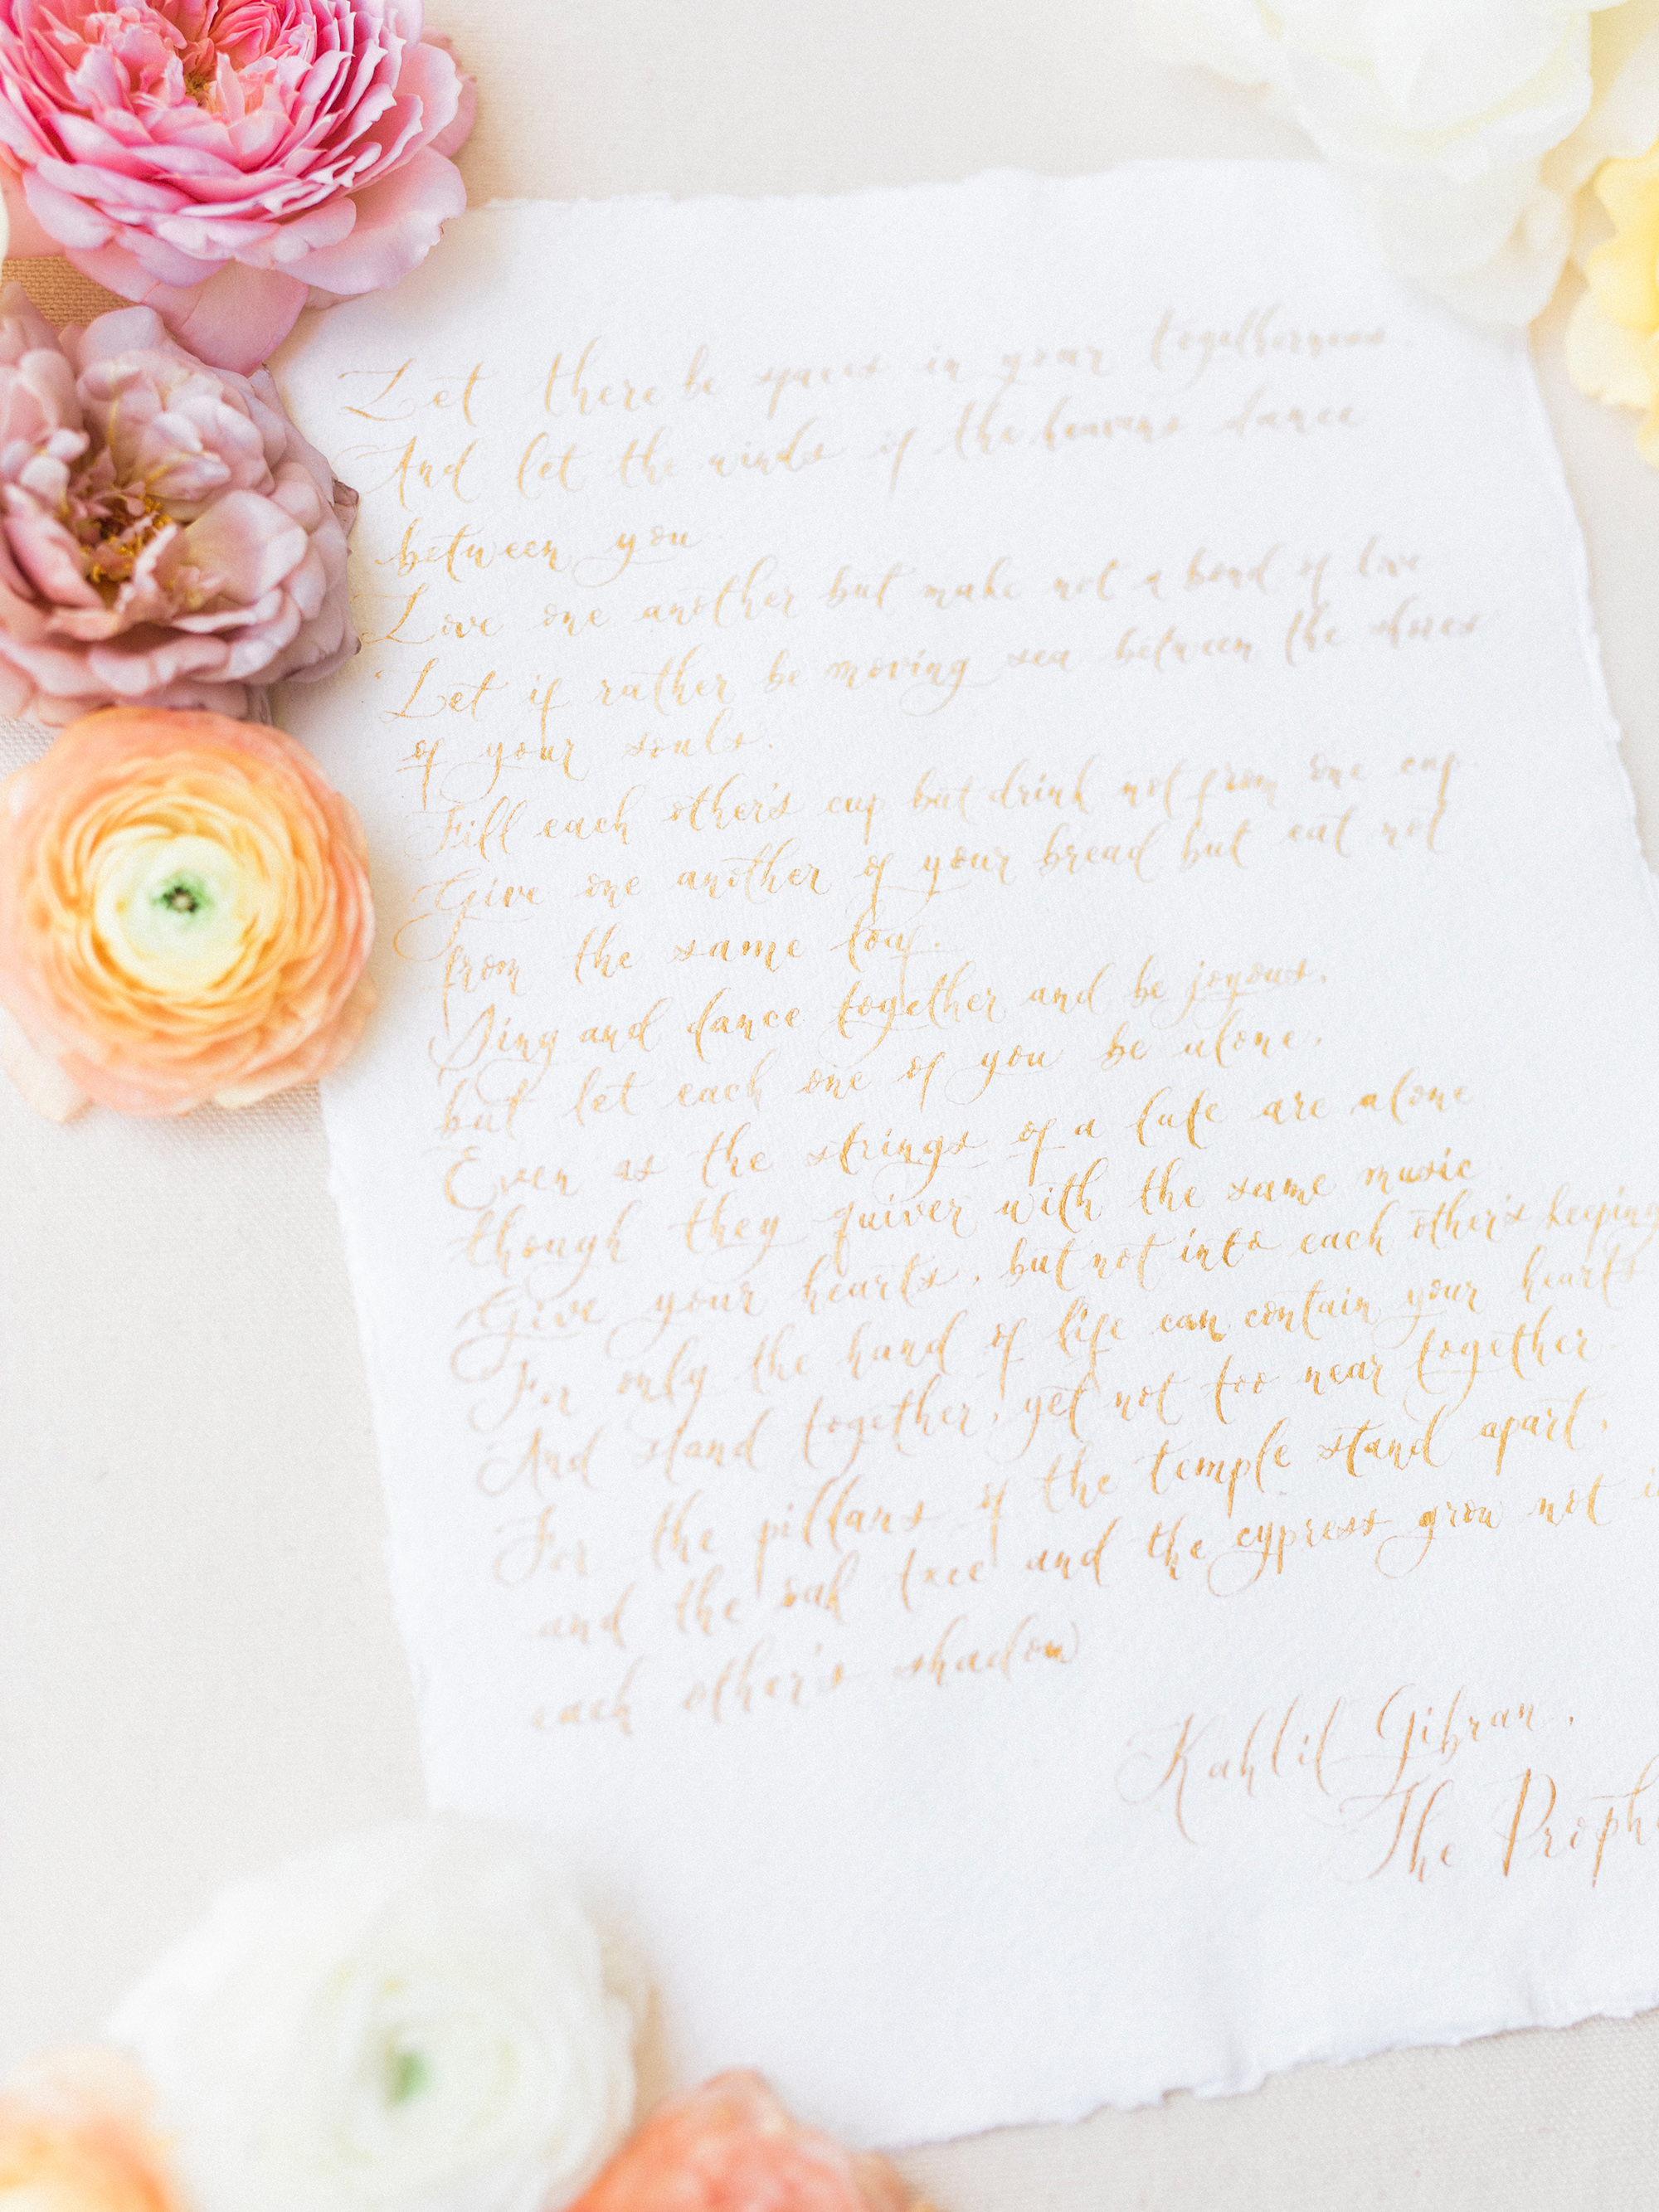 Let there be spaces in your togetherness
And let the winds of the heavens dance
between you.
Love one another but make not a bond of love
Let it rather be moving sea between the shores
of your souls.
Fill each other's cup but drink not from one cup.
Give one another of your bread but eat not
from the same loaf.
Sing and dance together and be joyous,
but let each one of you be alone,
Even as the strings of a lute are alone
though they quiver with the same music
Give your hearts, but not into each other's keeping
For only the hand of life can contain your hearts
And stand together, yet not too near together.
For the pillars of the temple stand apart,
and the oak tree and the cypress grow not
each other's shadow
Kahlil Gibran,
The